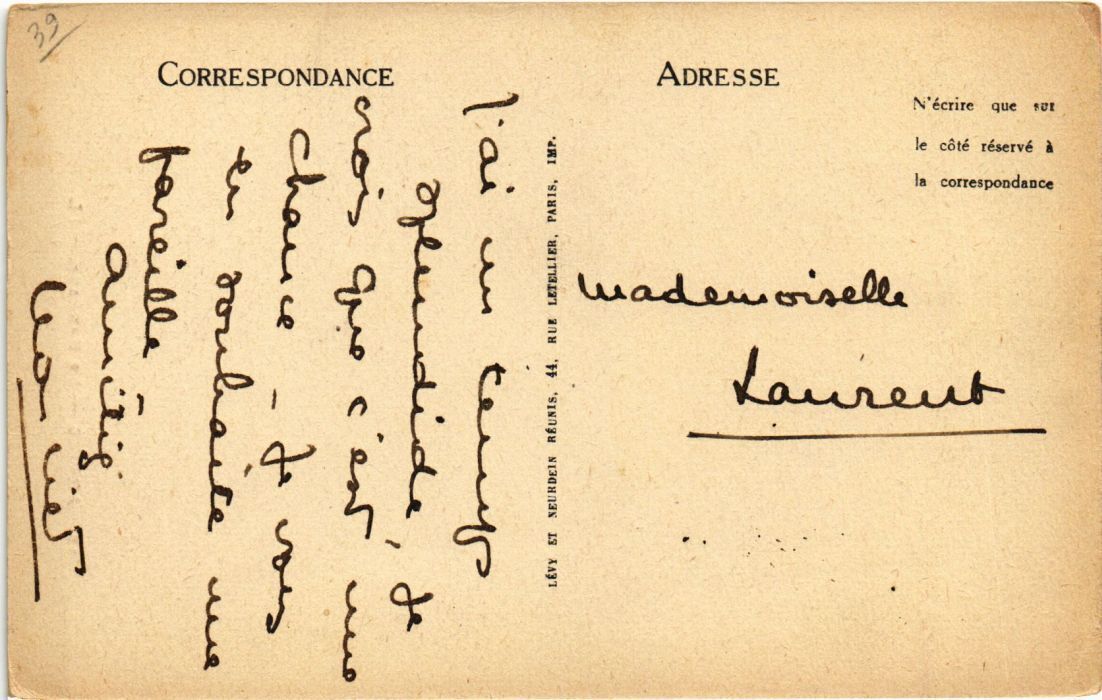 39
CORRESPONDANCE
J'ai un temps
splendide, je
crois que c'est une
chance - je vous
en souhaite une
pareille
amitiés
LÉVY ET NEURDEIN RÉUNIS, 44, RUE LETELLIER, PARIS, IMP.
ADRESSE
N'écrire que sur
le côté réservé à
la correspondance
Mademoiselle
Laurent